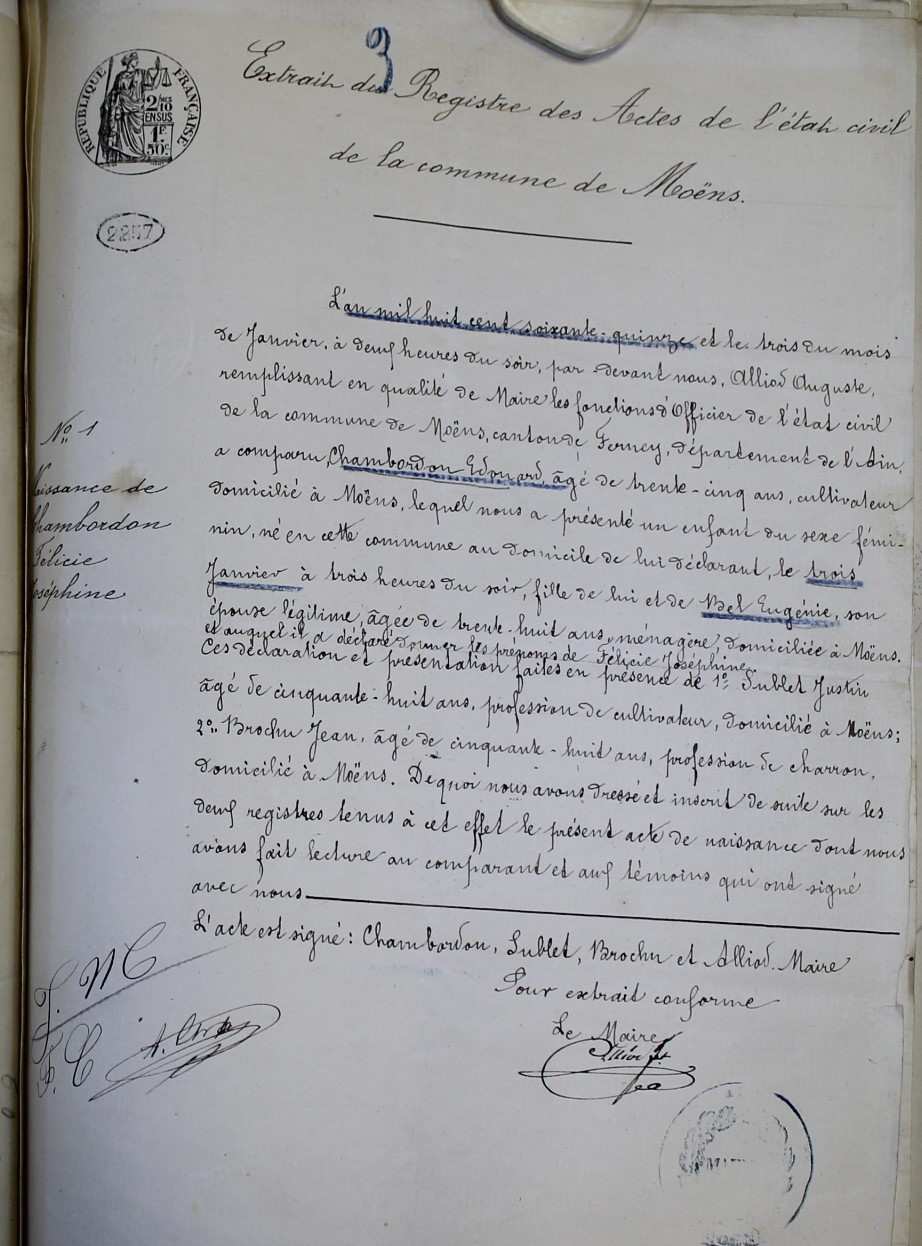 3
RÉPUBLIQUE FRANÇAISE
2/10
EN SUS
1F
50c
2257
Extrait du Registre des Actes de l'état civil
de la commune de Moëns.
L'an mil huit cent soixante-quinze et le trois du mois
de Janvier, à deux heures du soir, par devant nous, Alliod Auguste,
remplissant en qualité de Maire les fonctions d'Officier de l'état civil
de la commune de Moëns, canton de Ferney, département de l'Ain,
a comparu, Chambordon Edouard, âgé de trente-cinq ans, cultivateur
domicilié à Moëns, lequel nous a présenté un enfant du sexe fémi-
nin, né en cette commune au domicile de lui déclarant, le trois
Janvier à trois heures du soir, fille de lui et de Bel Eugénie, son
épouse légitime, âgée de trente-huit ans, ménagère, domiciliée à Moëns.
et auquel il a déclaré donner les prénoms de Félicie Joséphine.
Ces déclaration et présentation faites en présence de 1o Sublet Justin
âgé de cinquante-huit ans, profession de cultivateur, domicilié à Moëns;
2o Brochu Jean, âgé de cinquante-huit ans, profession de charron,
domicilié à Moëns. De quoi nous avons dressé et inscrit de suite sur les
deux registres tenus à cet effet le présent acte de naissance dont nous
avons fait lecture au comparant et aux témoins qui ont signé
avec nous
L'acte est signé: Chambordon, Sublet, Brochu et Alliod. Maire
Pour extrait conforme
Le Maire
No 1
Naissance de
Chambordon
Félicie
Joséphine
J. M
F. C